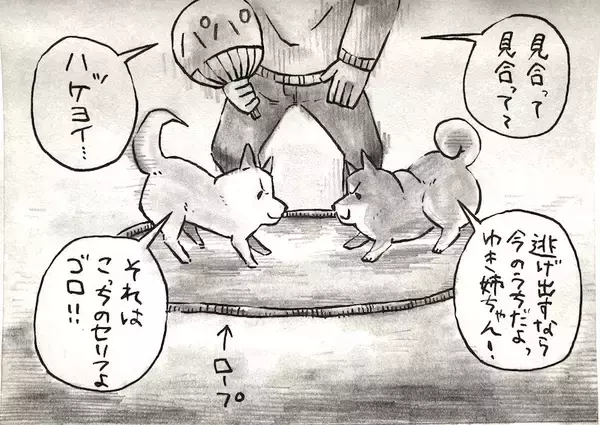 見合って
見合ってて
ハゲヨイ…
パパ
逃げ出すなら
今のうちだよっ
ゆき姉ちゃん!
それは
こっちのセリフよ
ゴロ!!
ロープ